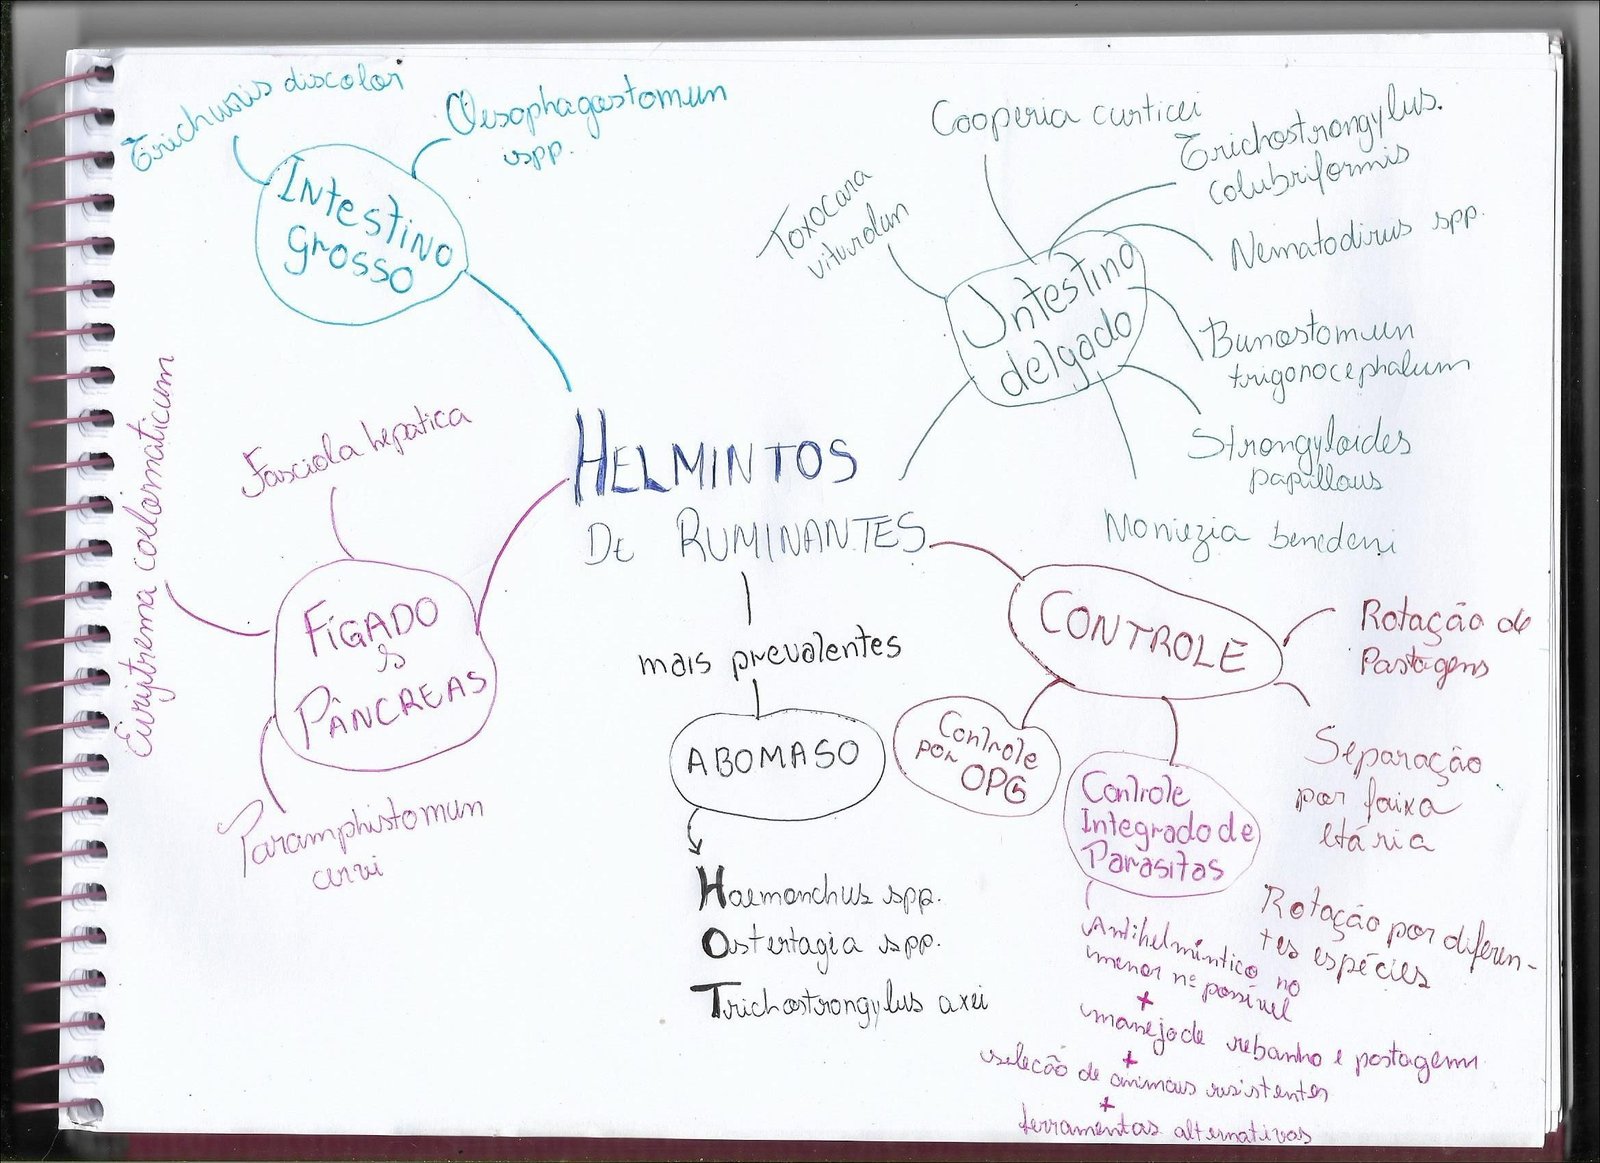 Trichuris discolor
Oesophagostomun
spp.
Intestino
grosso
Cooperia curticei
Trichostrongylus.
colubriformis
Toxocara
viturolun
Nematodirus spp.
Intestino
delgado
Bunostomun
trigonocephalum
Strongyloides
papillous
Moniezia benedeni
HELMINTOS
DE RUMINANTES
Fasciola hepatica
Euriptrema coelomaticum
FÍGADO
PÂNCREAS
Paramphistomun
cervi
mais prevalentes
ABOMASO
Haemonchus spp.
Ostertagia spp.
Trichostrongylus axei
CONTROLE
Rotação de
Pastagens
Separação
por faixa
etária
Rotação por diferen-
tes espécies
Controle
por OPG
Controle
Integrado de
Parasitas
Antihelmíntico no
menor nº possível
+
manejo de rebanho e pastagem
+
seleção de animais resistentes
+
ferramentas alternativas